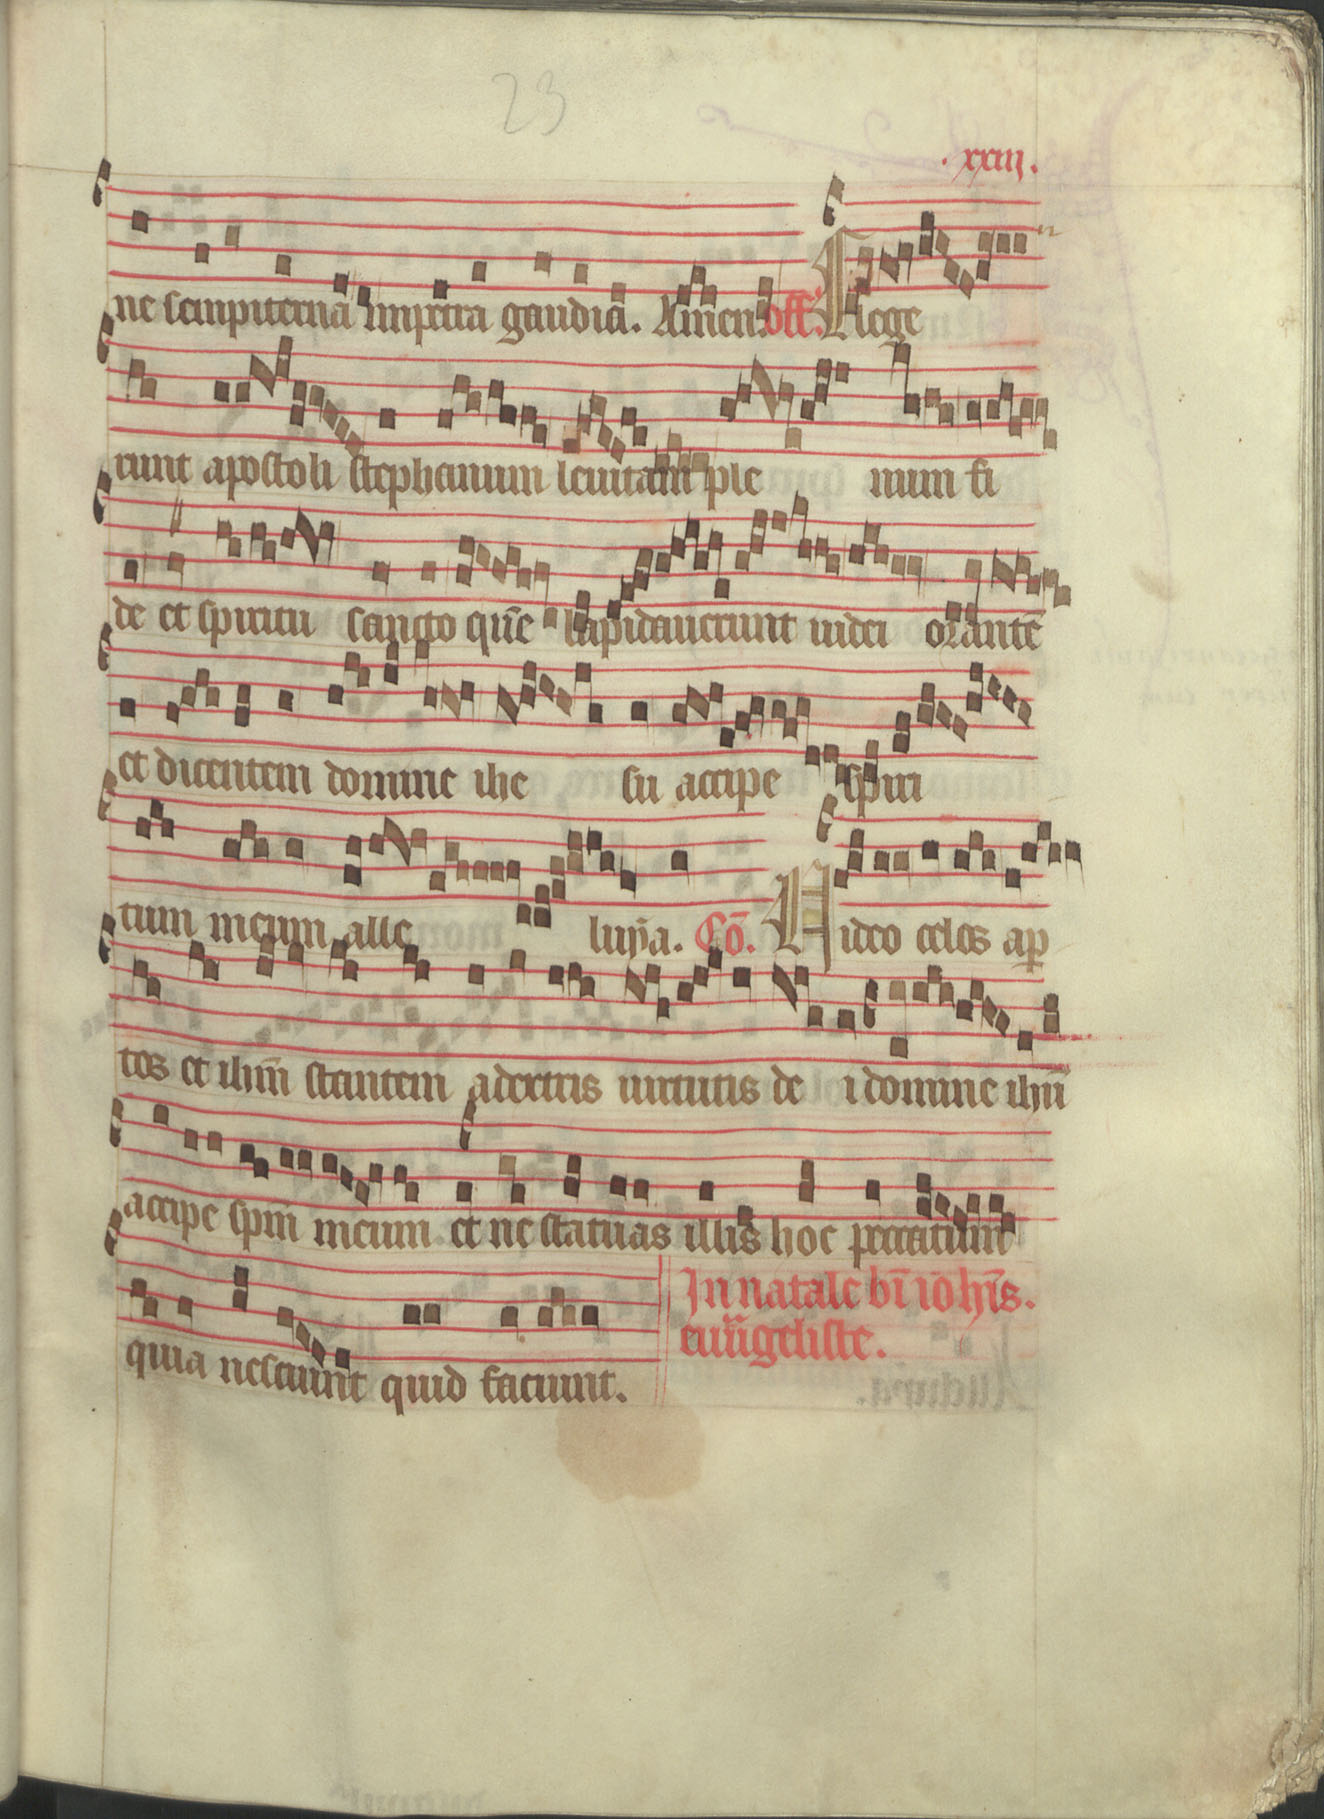 23
. xxiij.
ne sempiterna impetra gaudia. Amen. off. Elege
runt apostoli stephanum leuitam ple num fi
de et spiritu sancto quē lapidauerunt iudei orantē
et dicentem domine ihe su accipe spiri
tum meum alle luya. Cō. Uideo celos ap
tos et ihm̄ stantem adextris uirtutis de i domine ihū
accipe spm̄ meum et ne statuas illis hoc peccatum
quia nesciunt quid faciunt.
In natale bī iohīs.
euāgeliste.